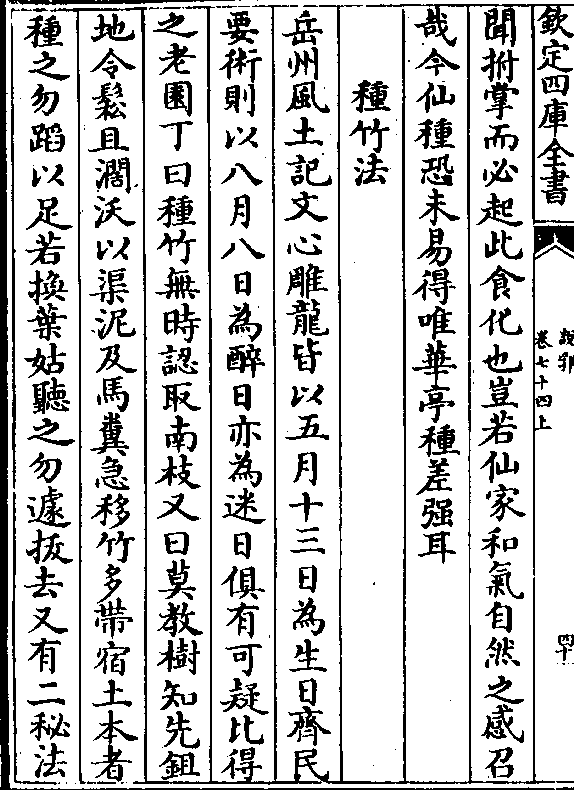 欽定四庫全書
說郛
卷七十四上
四十
聞拊掌而必起此食化也豈若仙家和氣自然之感召
哉今仙種恐未易得唯華亭種差强耳
種竹法
岳州風土記文心雕龍皆以五月十三日為生日齊民
要術則以八月八日為醉日亦為迷日俱有可疑比得
之老圃丁曰種竹無時認取南枝又曰莫教樹知先鉏
地令鬆且濶沃以渠泥及馬糞急移竹多帶宿土本者
種之勿蹈以足若換葉姑聽之勿遽拔去又有二秘法